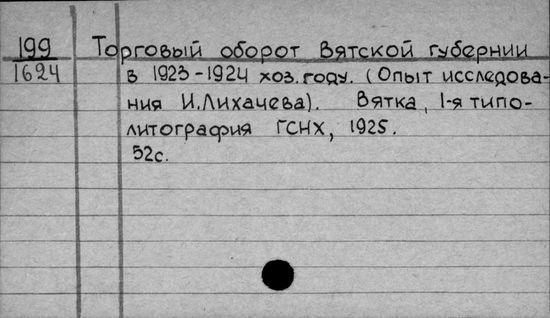 199 Торговый оборот Вятской губернии
1624 в 1923-1924 хоз. году. (Опыт исследова-
ния И. Лихачева). Вятка, 1-я типо-
литография ГСНХ, 1925.
52с.